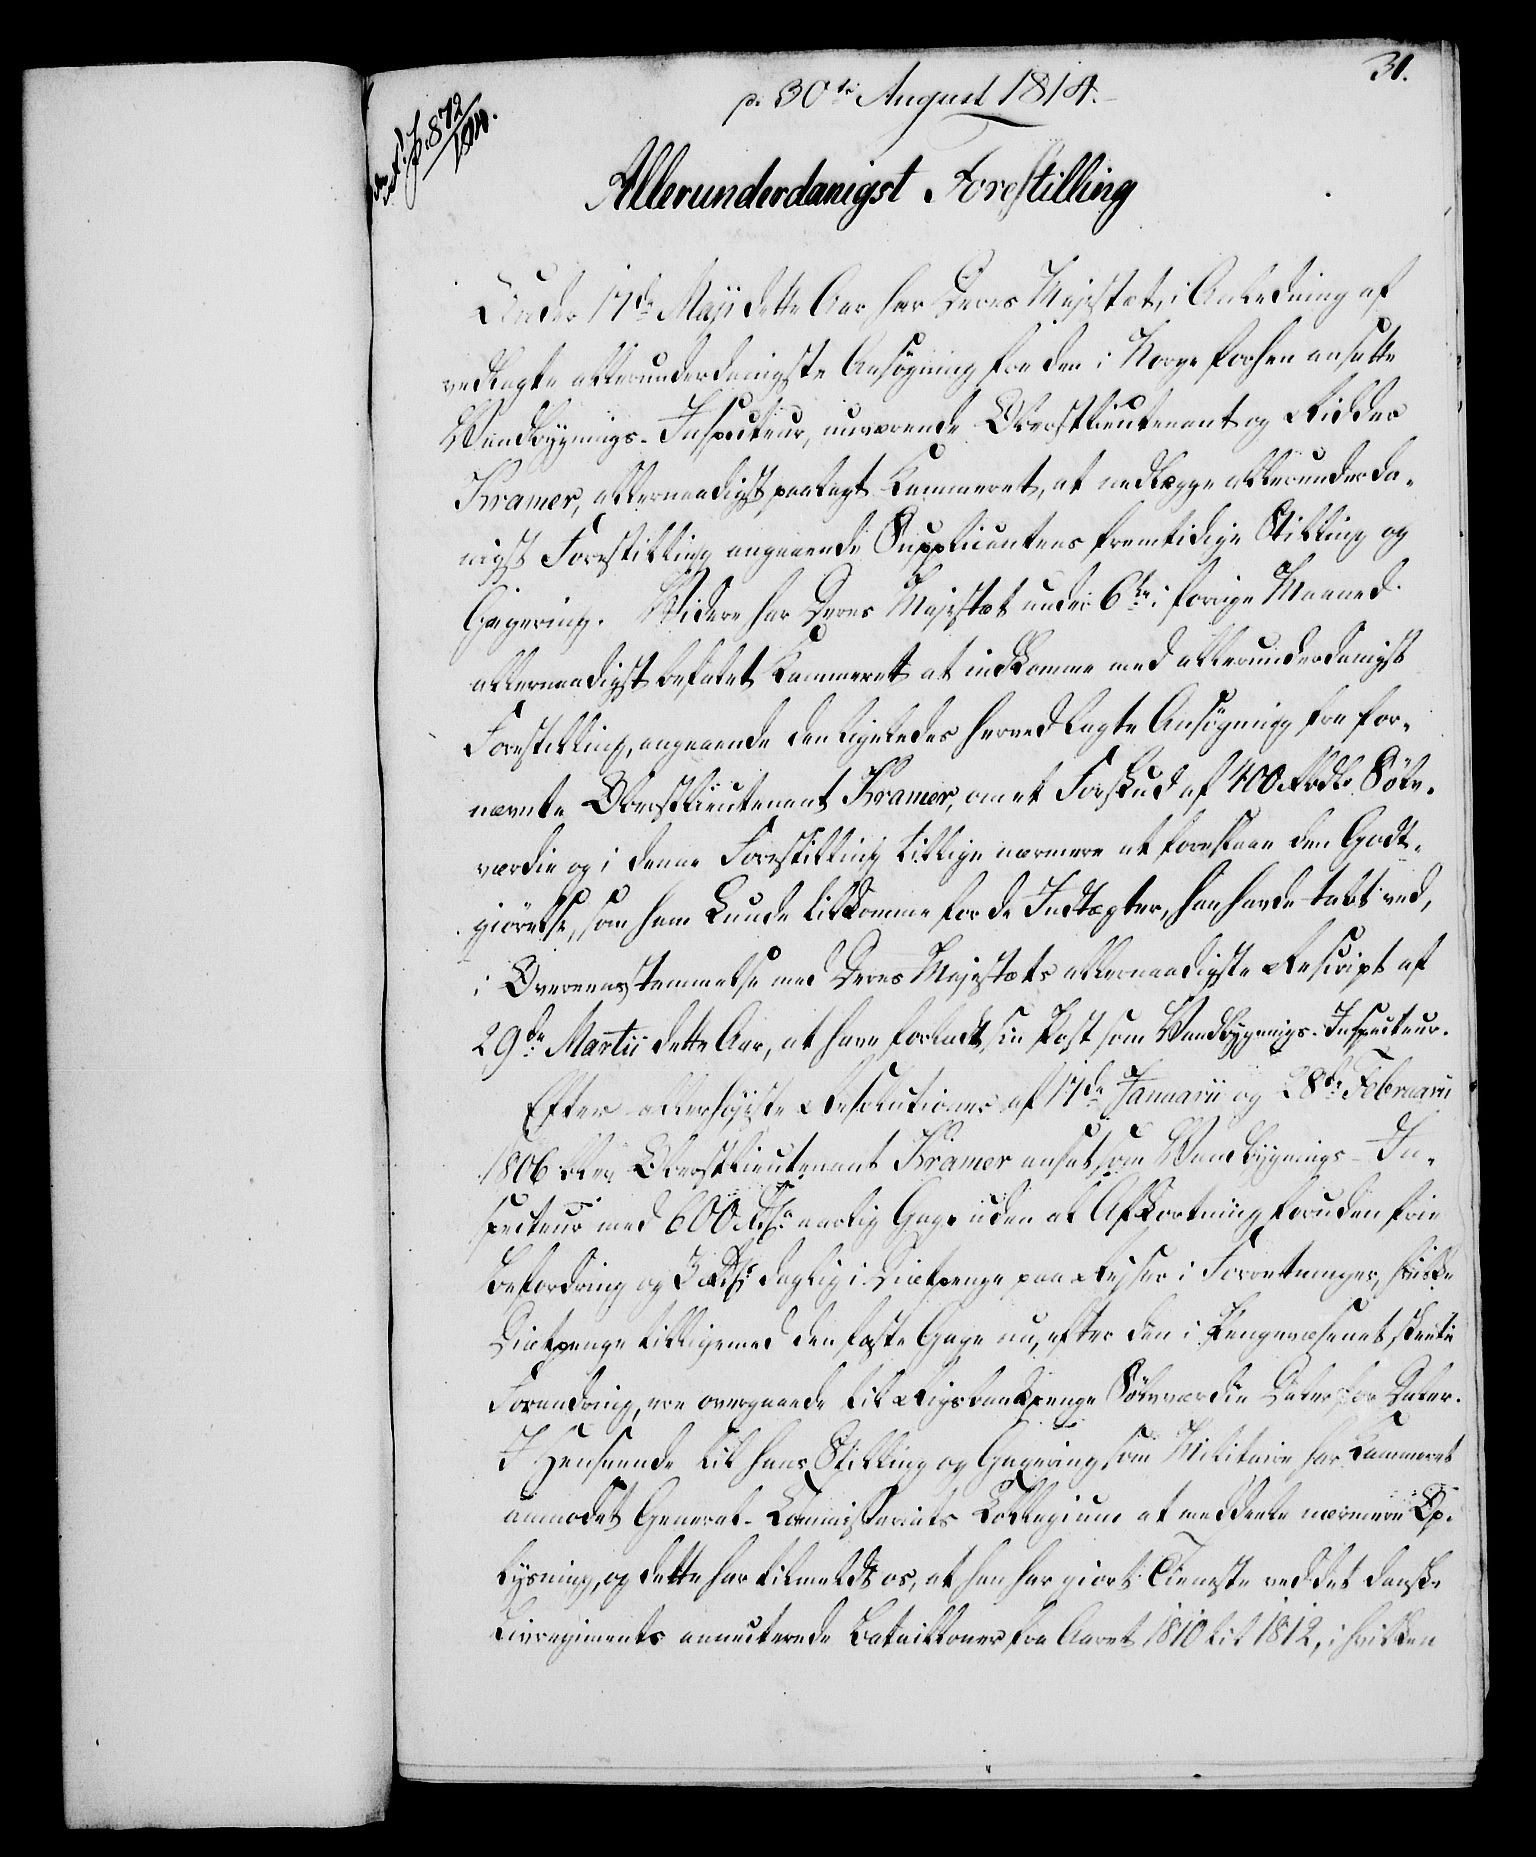 31.
p. 30te August 1814.
J. 872/1814.
Allerunderdanigst Forestilling
Under 17de Maji dette Aar har Deres Majestæt, i Anledning af
vedlagte allerunderdanigste Ansøgning fra den i Norge forhen ansatte
Vandbygnings-Inspecteur, nuværende Oberstlieutenant og Ridder
Kramer, allernaadigst paalagt Kammeret, at nedlægge allerunderda-
nigst Forestilling angaaende Supplicantens fremtidige Stilling og
Gagering. Videre har Deres Majestæt under 6te i forrige Maaned
allernaadigst befalet Kammeret at indkomme med allerunderdanigst
Forestilling, angaaende den ligeledes hervedlagte Ansøgning fra for-
nævnte Oberstlieutenant Kramer, om et Forskud af 400 Rbdlr. Sølv-
værdie og i denne Forestilling tillige nærmere at foreslaae den Godt-
giørelse, som ham kunde tilkomme for de Indtægter, han havde tabt ved,
i Overeensstemmelse med Deres Majestæts allernaadigste Rescript af
29de Martii dette Aar, at have forladt sin Post som Vandbygnings-Inspecteur.
Efter allerhøieste Resolutioner af 17de Januarii og 28de Februarii
1806 blev Oberstlieutenant Kramer ansat som Vandbygnings-In-
specteur med 600 Rdr. aarlig Gage uden al Afkortning foruden frie
Befordring og 3 Rdr. daglig i Diætpenge paa Rejser i Forretninger, hvilke
Diætpenge tilligemed den faste Gage nu, efter den i Pengevæsenet skeete
Forandring, ere overgaaede til Rigsbankpenge Sølvværdie Daler for Daler.
I Henseende til hans Stilling og Gagering som Militaire har Kammeret
anmodet General-Commissariats Collegium at meddeele nærmere Op-
lysning, og dette har tilmeldt os, at han har giort Tieneste ved det danske
Livregiments annecterede Batailloner fra Aaret 1810 til 1812, i hvilken